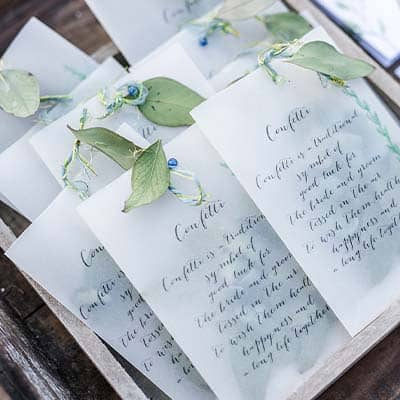 Confetti
Confetti is a traditional
symbol of
good luck for
the bride and groom
tossed in the air
to wish them health
happiness and
a long life together
Confetti
Confetti is a traditional
symbol of
good luck for
the bride and groom
tossed in the air
to wish them health
happiness and
a long life together
Confetti
Confetti is a
sy
good
the bride
tossed
to wish
happ
a long
Confetti
Confetti